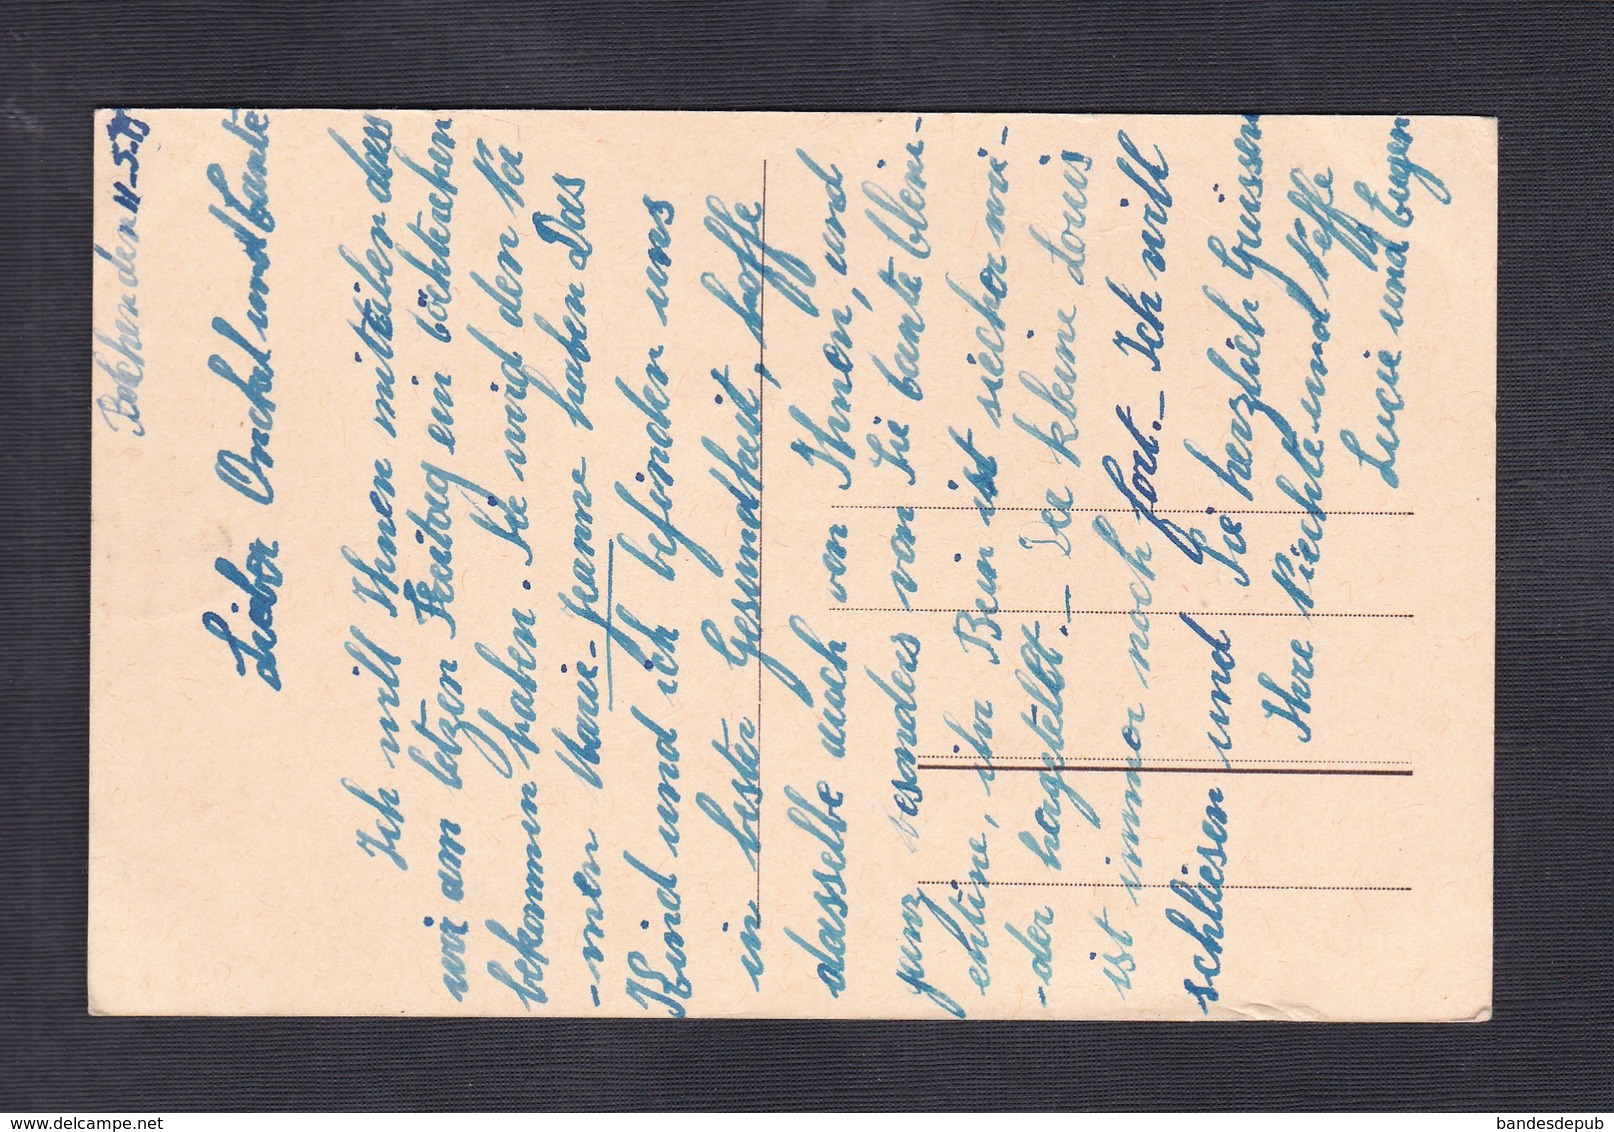 11-5-
Lieber Onckel und Tante
Ich will Ihnen mitteilen dass
wir am letzen Freitag ein töchterchen
bekommen haben. Sie wird den Na
-men Marie-Jeanne haben Das
Kind und ich befinden uns
in bester Gesundheit, hoffe
dasselbe auch von Ihnen, und
ganz besonders von Sie tante Clem-
entine, ihr Bein ist sicher wie-
-der hergstellt. — Der kleine Louis
ist immer noch fort. — Ich will
schliesen und Sie herzlich Grüssen
Ihre Niechte und Neffe
Lucie und Eugen
bandesdepub